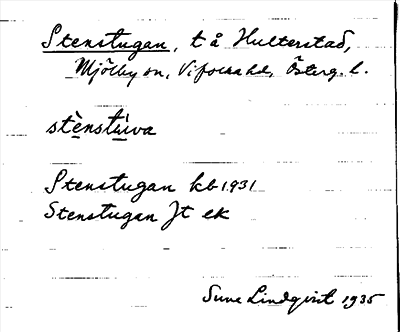 Stenstugan, t å Hulterstad,
Mjölby sn, Vifolka hd, Österg. l.
stènstùva
Stenstugan kb 1931
Stenstugan Jt ek
Sune Lindqvist 1935